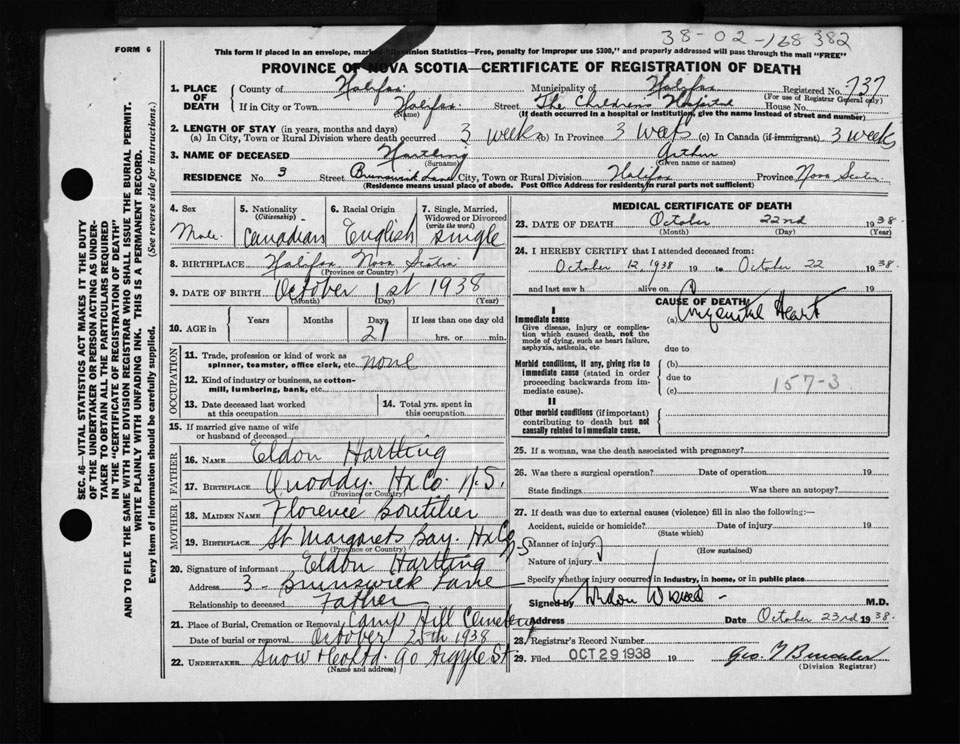 38-02-168382
FORM 6
This form if placed in an envelope, marked "Dominion Statistics—Free, penalty for improper use $300," and properly addressed will pass through the mail "FREE"
PROVINCE OF NOVA SCOTIA—CERTIFICATE OF REGISTRATION OF DEATH
SEC. 46—VITAL STATISTICS ACT MAKES IT THE DUTY
OF THE UNDERTAKER OR PERSON ACTING AS UNDER-
TAKER TO OBTAIN ALL THE PARTICULARS REQUIRED
IN THE "CERTIFICATE OF REGISTRATION OF DEATH"
AND TO FILE THE SAME WITH THE DIVISION REGISTRAR WHO SHALL ISSUE THE BURIAL PERMIT.
WRITE PLAINLY WITH UNFADING INK. THIS IS A PERMANENT RECORD.
Every item of information should be carefully supplied. (See reverse side for instructions.)
1. PLACE OF DEATH County of Halifax Municipality of Halifax Registered No. 737
(For use of Registrar General only)
If in City or Town Halifax Street The Childrens Hospital House No.
(Name) (If death occurred in a hospital or institution, give the name instead of street and number)
2. LENGTH OF STAY (in years, months and days)
(a) In City, Town or Rural Division where death occurred 3 weeks (b) In Province 3 weeks (c) In Canada (if immigrant) 3 weeks
3. NAME OF DECEASED Hartling Arthur
(Surname) (Given name or names)
RESIDENCE No. 3 Street Brunswick Lane City, Town or Rural Division Halifax Province Nova Scotia
(Residence means usual place of abode. Post Office Address for residents in rural parts not sufficient)
4. Sex Male
5. Nationality (Citizenship) Canadian
6. Racial Origin English
7. Single, Married, Widowed or Divorced (write the word) single
8. BIRTHPLACE Halifax Nova Scotia
(Province or Country)
9. DATE OF BIRTH October 1st 1938
(Month) (Day) (Year)
10. AGE in Years Months Days 21 If less than one day old hrs. or min.
OCCUPATION
11. Trade, profession or kind of work as spinner, teamster, office clerk, etc. none
12. Kind of industry or business, as cotton-mill, lumbering, bank, etc.
13. Date deceased last worked at this occupation
14. Total yrs. spent in this occupation
15. If married give name of wife or husband of deceased
FATHER
16. NAME Eldon Hartling
17. BIRTHPLACE Quoddy. Hx Co. N.S.
(Province or Country)
MOTHER
18. MAIDEN NAME Florence Boutilier
19. BIRTHPLACE St Margarets Bay. Hx Co N.S
(Province or Country)
20. Signature of informant Eldon Hartling
Address 3 - Brunswick Lane
Relationship to deceased Father
21. Place of Burial, Cremation or Removal Camp Hill Cemetery
Date of burial or removal October 25th 1938
22. UNDERTAKER Snow & Co Ltd. 90 Argyle St.
(Name and address)
MEDICAL CERTIFICATE OF DEATH
23. DATE OF DEATH October 22nd 1938.
(Month) (Day) (Year)
24. I HEREBY CERTIFY that I attended deceased from:
October 12, 1938 19 to October 22 1938.
and last saw h alive on 19
CAUSE OF DEATH
I
Immediate cause (a) Congenital Heart
Give disease, injury or complication which caused death, not the mode of dying, such as heart failure, asphyxia, asthenia, etc. due to
Morbid conditions, if any, giving rise to immediate cause (stated in order proceeding backwards from immediate cause). (b)
due to
(c) 157-3
II
Other morbid conditions (if important) contributing to death but not causally related to immediate cause.
25. If a woman, was the death associated with pregnancy?
26. Was there a surgical operation? Date of operation 19
State findings Was there an autopsy?
27. If death was due to external causes (violence) fill in also the following:—
Accident, suicide or homicide? Date of injury 19
(State which)
Manner of injury
(How sustained)
Nature of injury
Specify whether injury occurred in industry, in home, or in public place
Signed by M.D.
Address Date October 23rd 1938.
28. Registrar's Record Number
29. Filed OCT 29 1938 19 Geo.
(Division Registrar)